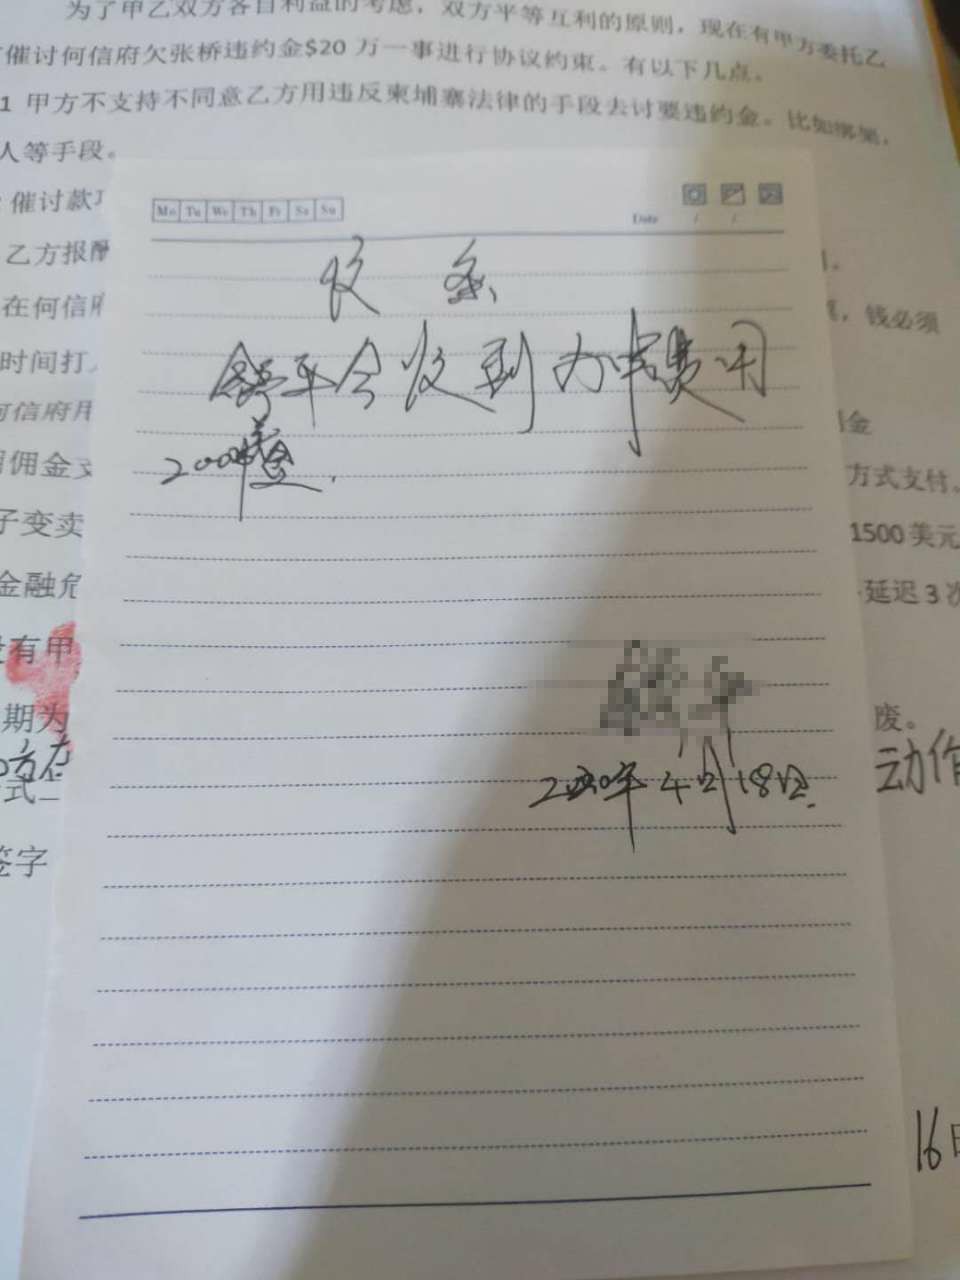 为了甲乙双方各自利益的考虑，双方平等互利的原则，现在有甲方委托乙
催讨何信府欠张桥违约金$20 万一事进行协议约束。有以下几点。
1 甲方不支持不同意乙方用违反柬埔寨法律的手段去讨要违约金。比如绑架，
人等手段。
催讨款
乙方报酬
在何信府
，钱必须
时间打
何信府用
金
佣金支
方式支付。
子变卖
1500 美元
金融危
延迟 3 次
有甲
期为
废。
方在
动作
式二
签字
16日
Mo Tu We Th Fr Sa Su
Date / /
收 条
平会收到办事费用
2000美金.
2020年4月18日.